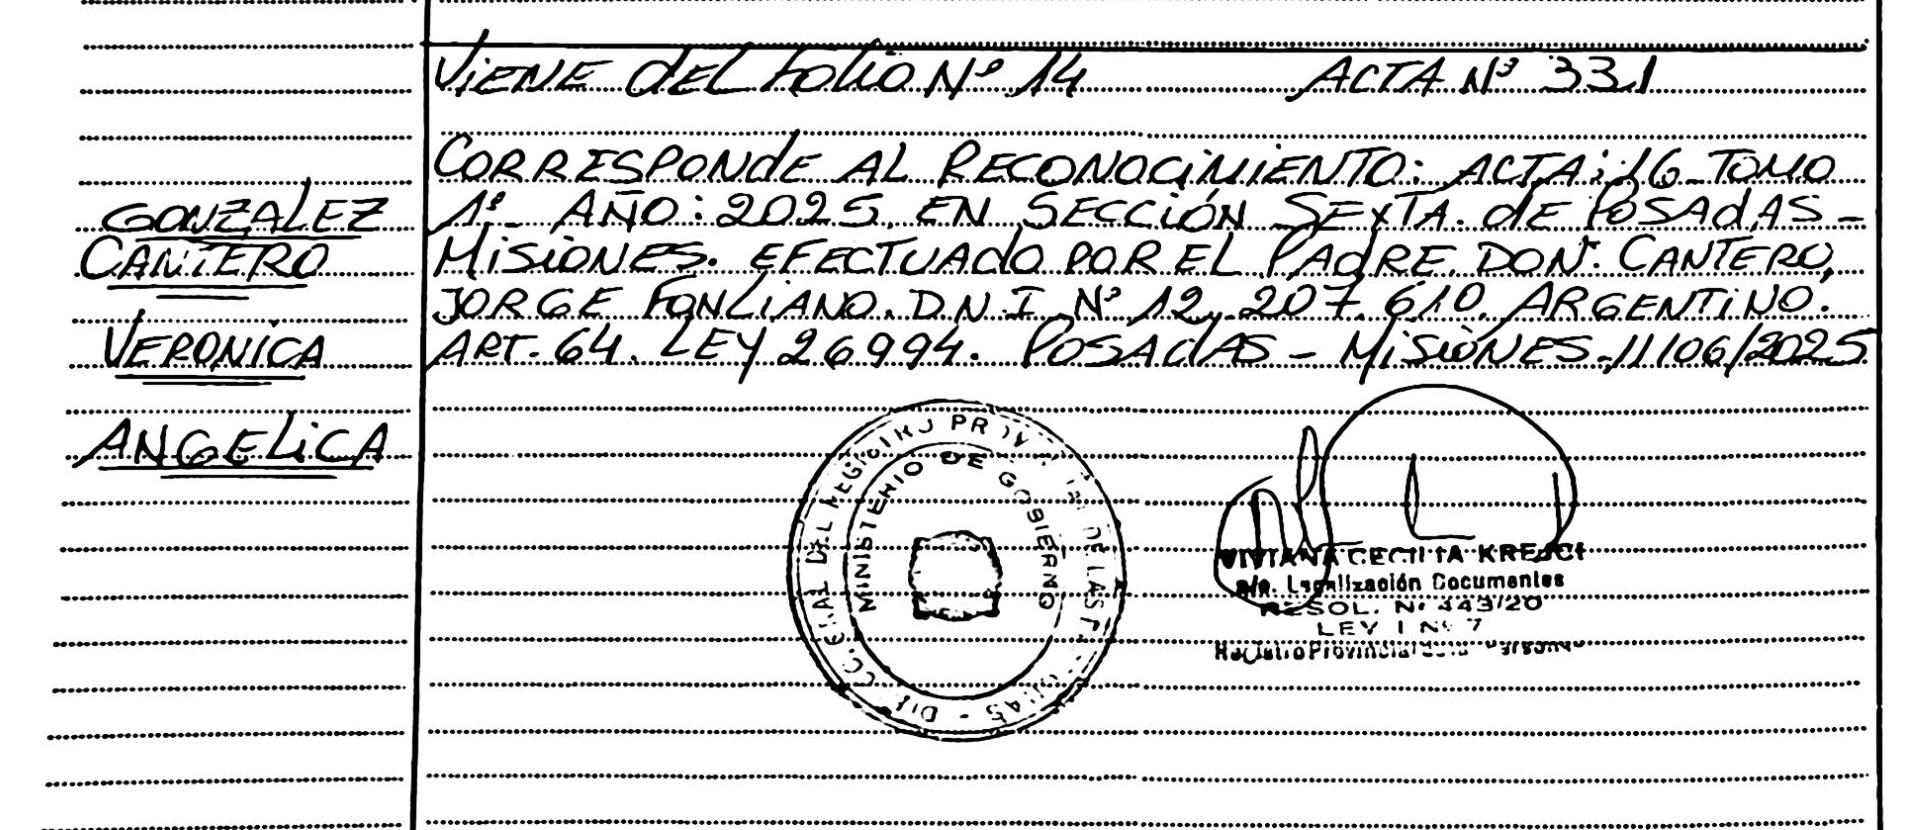 VIENE DEL FOLIO Nº 14 ACTA Nº 331
CORRESPONDE AL RECONOCIMIENTO: ACTA: 16 TOMO
1º AÑO: 2025. EN SECCIÓN SEXTA. de POSADAS -
MISIONES. EFECTUADO POR EL PADRE. DON: CANTERO,
JORGE D.N.I Nº 12.207.610. ARGENTINO.
ART. 64. LEY 26994. POSADAS - MISIONES - 11/06/2025
GONZALEZ
CANTERO
VERONICA
ANGELICA
MINISTERIO DE GOBIERNO
VIVIANA CECILIA KREJCI
Legalización Documentos
RESOL. Nº 443/20
LEY I Nº 7
Registro Provincial